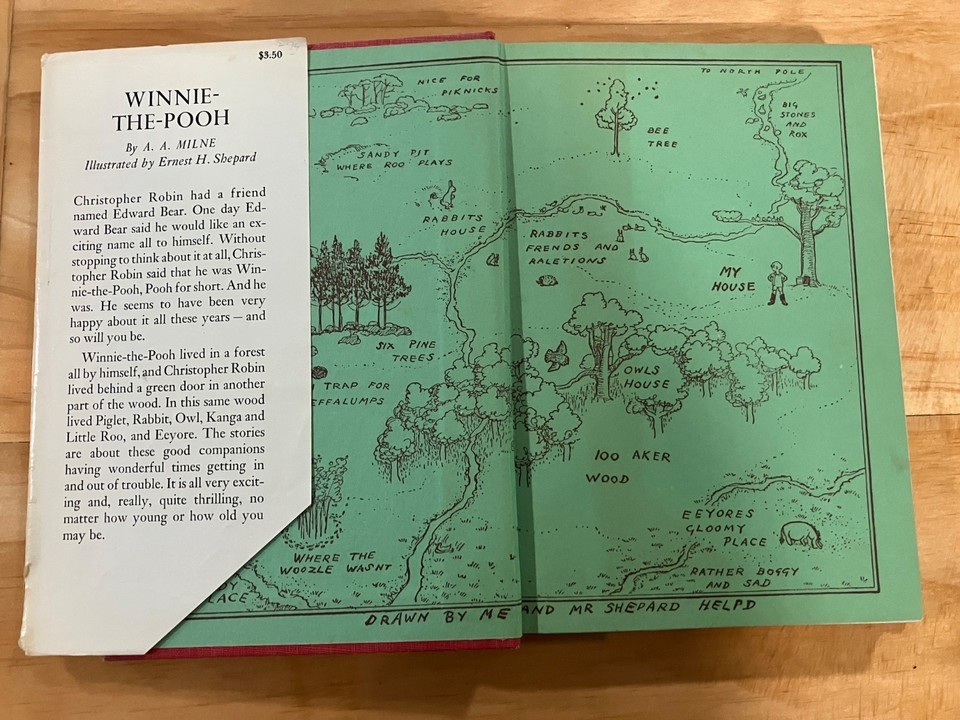 $3.50
WINNIE-
THE-POOH
By A. A. MILNE
Illustrated by Ernest H. Shepard
Christopher Robin had a friend
named Edward Bear. One day Ed-
ward Bear said he would like an ex-
citing name all to himself. Without
stopping to think about it at all, Chris-
topher Robin said that he was Win-
nie-the-Pooh, Pooh for short. And he
was. He seems to have been very
happy about it all these years — and
so will you be.
Winnie-the-Pooh lived in a forest
all by himself, and Christopher Robin
lived behind a green door in another
part of the wood. In this same wood
lived Piglet, Rabbit, Owl, Kanga and
Little Roo, and Eeyore. The stories
are about these good companions
having wonderful times getting in
and out of trouble. It is all very excit-
ing and, really, quite thrilling, no
matter how young or how old you
may be.
NICE FOR
PIKNICKS
SANDY PIT
WHERE ROO PLAYS
RABBITS
HOUSE
SIX PINE
TREES
TRAP FOR
EFFALUMPS
WHERE THE
WOOZLE WASNT
LACE
TO NORTH POLE
BIG
STONES
AND
ROX
BEE
TREE
RABBITS
FRENDS AND
RALETIONS
MY
HOUSE
OWLS
HOUSE
100 AKER
WOOD
EEYORES
GLOOMY
PLACE
RATHER BOGGY
AND SAD
DRAWN BY ME AND MR SHEPARD HELPD